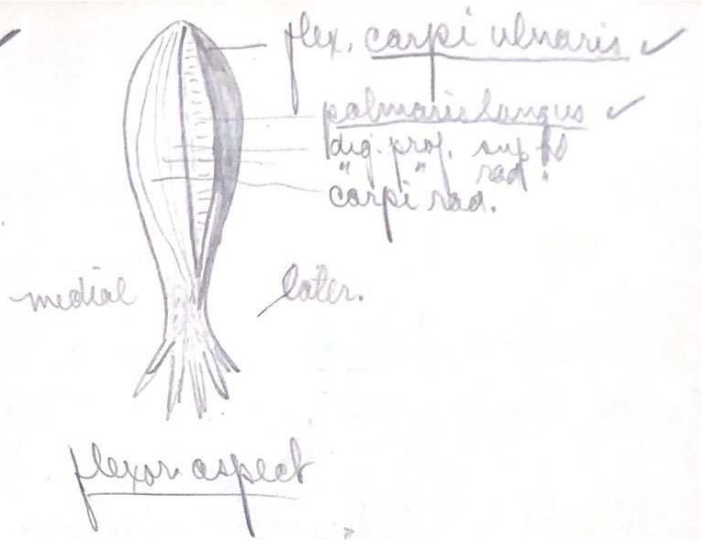 flex. carpi ulnaris ✓
palmaris longus ✓
dig. prof. sup
" " rad.
carpi rad.
medial
later.
flexor aspect